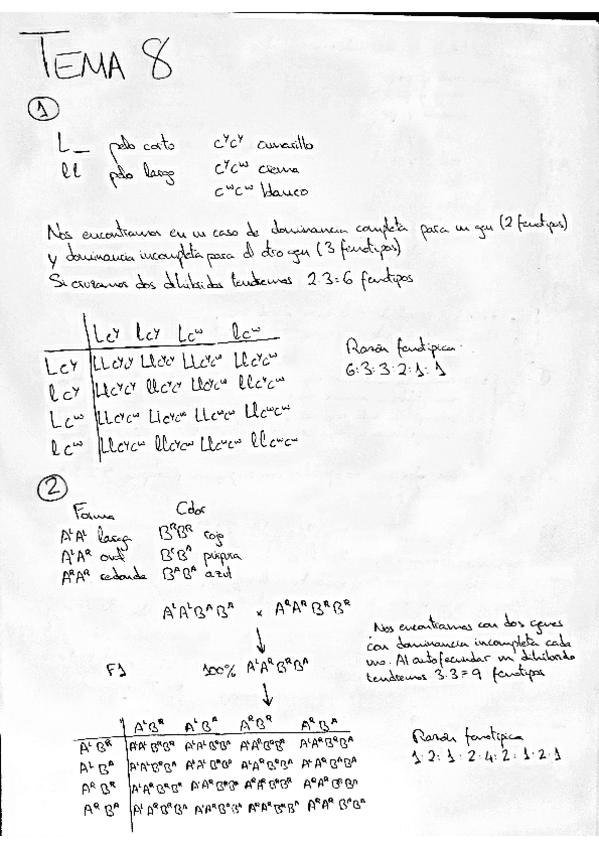 TEMA 8
1
L_ pelo corto CʸCʸ amarillo
ll pelo largo CʸCʷ crema
CʷCʷ blanco
Nos encontramos en un caso de dominancia completa para un gen (2 fenotipos)
y dominancia incompleta para el otro gen (3 fenotipos)
Si cruzamos dos dihíbridos tendremos 2·3=6 fenotipos
LCʸ lCʸ LCʷ lCʷ
LCʸ LLCʸCʸ LlCʸCʸ LLCʸCʷ LlCʸCʷ
lCʸ LlCʸCʸ llCʸCʸ LlCʸCʷ llCʸCʷ
LCʷ LLCʸCʷ LlCʸCʷ LLCʷCʷ LlCʷCʷ
lCʷ LlCʸCʷ llCʸCʷ LlCʷCʷ llCʷCʷ
Razón fenotípica
6:3:3:2:1:1
2
Forma Color
AᴸAᴸ larga BᴿBᴿ rojo
AᴸAᴿ oval púrpura
AᴿAᴿ redonda BᴬBᴬ azul
AᴸAᴸBᴬBᴬ x AᴿAᴿBᴿBᴿ
F1 100% AᴸAᴿBᴿBᴬ
Nos encontramos con dos genes
con dominancia incompleta cada
uno. Al autofecundar un dihíbrido
tendremos 3·3=9 fenotipos
AᴸBᴿ AᴸBᴬ AᴿBᴿ AᴿBᴬ
AᴸBᴿ AᴸAᴸBᴿBᴿ AᴸAᴸBᴿBᴬ AᴸAᴿBᴿBᴿ AᴸAᴿBᴿBᴬ
AᴸBᴬ AᴸAᴸBᴿBᴬ AᴸAᴸBᴬBᴬ AᴸAᴿBᴿBᴬ AᴸAᴿBᴬBᴬ
AᴿBᴿ AᴸAᴿBᴿBᴿ AᴸAᴿBᴿBᴬ AᴿAᴿBᴿBᴿ AᴿAᴿBᴿBᴬ
AᴿBᴬ AᴸAᴿBᴿBᴬ AᴸAᴿBᴬBᴬ AᴿAᴿBᴿBᴬ AᴿAᴿBᴬBᴬ
Razón fenotípica
1:2:1:2:4:2:1:2:1